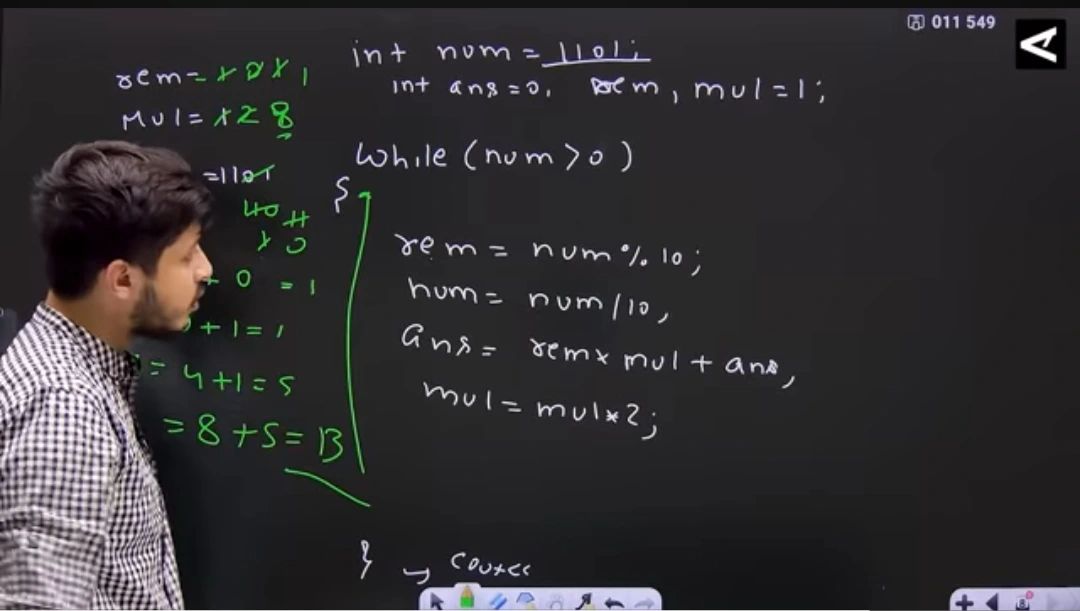 011 549
int num = 1101;
int ans = 0, rem, mul = 1;
while (num > 0)
{
rem = num % 10;
num = num / 10,
ans = rem x mul + ans,
mul = mul * 2;
}
rem = 1 0 1 1
mul = 1 2 8
= 1101
110 11
1 0
+ 0 = 1
+ 1 = 1
= 4 + 1 = 5
= 8 + 5 = 13
8